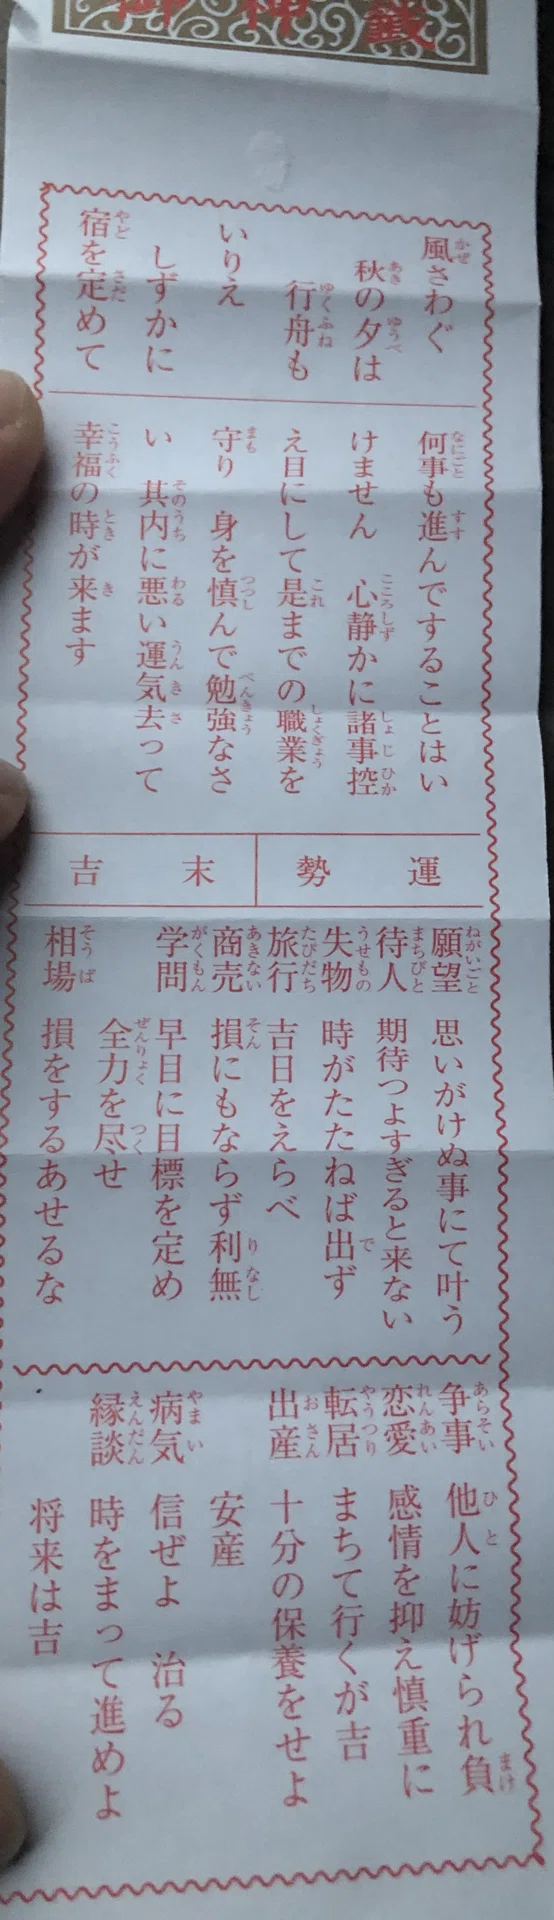 御神籤
風さわぐ
秋の夕は
行舟も
いりえ
しずかに
宿を定めて
何事も進んですることはい
けません 心静かに諸事控
え目にして是までの職業を
守り 身を慎んで勉強なさ
い 其内に悪い運気去って
幸福の時が来ます
運勢
末吉
願望 思いがけぬ事にて叶う
待人 期待つよすぎると来ない
失物 時がたたねば出ず
旅行 吉日をえらべ
商売 損にもならず利無
学問 早目に目標を定め
全力を尽せ
相場 損をするあせるな
争事 他人に妨げられ負
恋愛 感情を抑え慎重に
転居 まちて行くが吉
出産 十分の保養をせよ
安産
病気 信ぜよ 治る
縁談 時をまって進めよ
将来は吉